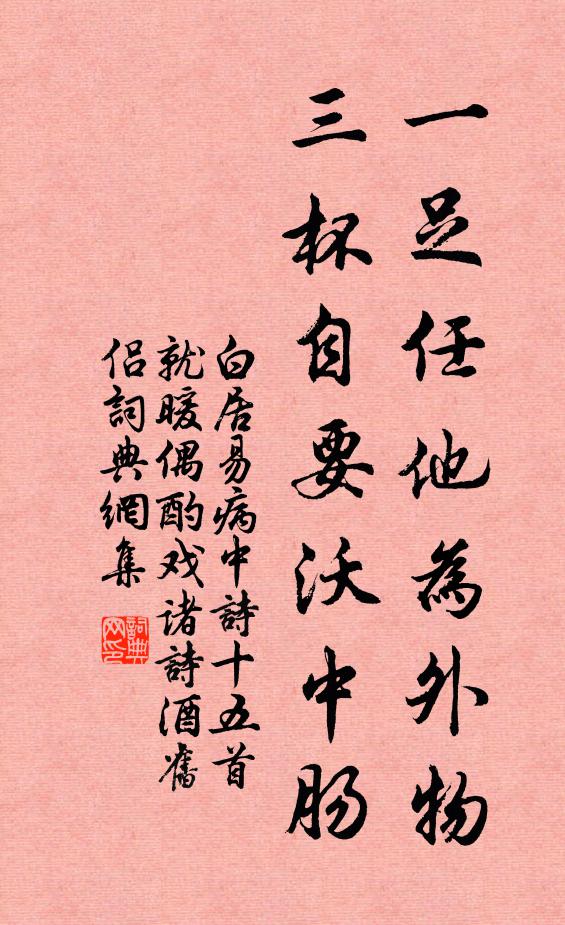 一足任他為外物
三杯自要沃中肠
白居易病中詩十五首
就暖偶酌戏诸詩酒舊
侣詞典網集
詞典
网印